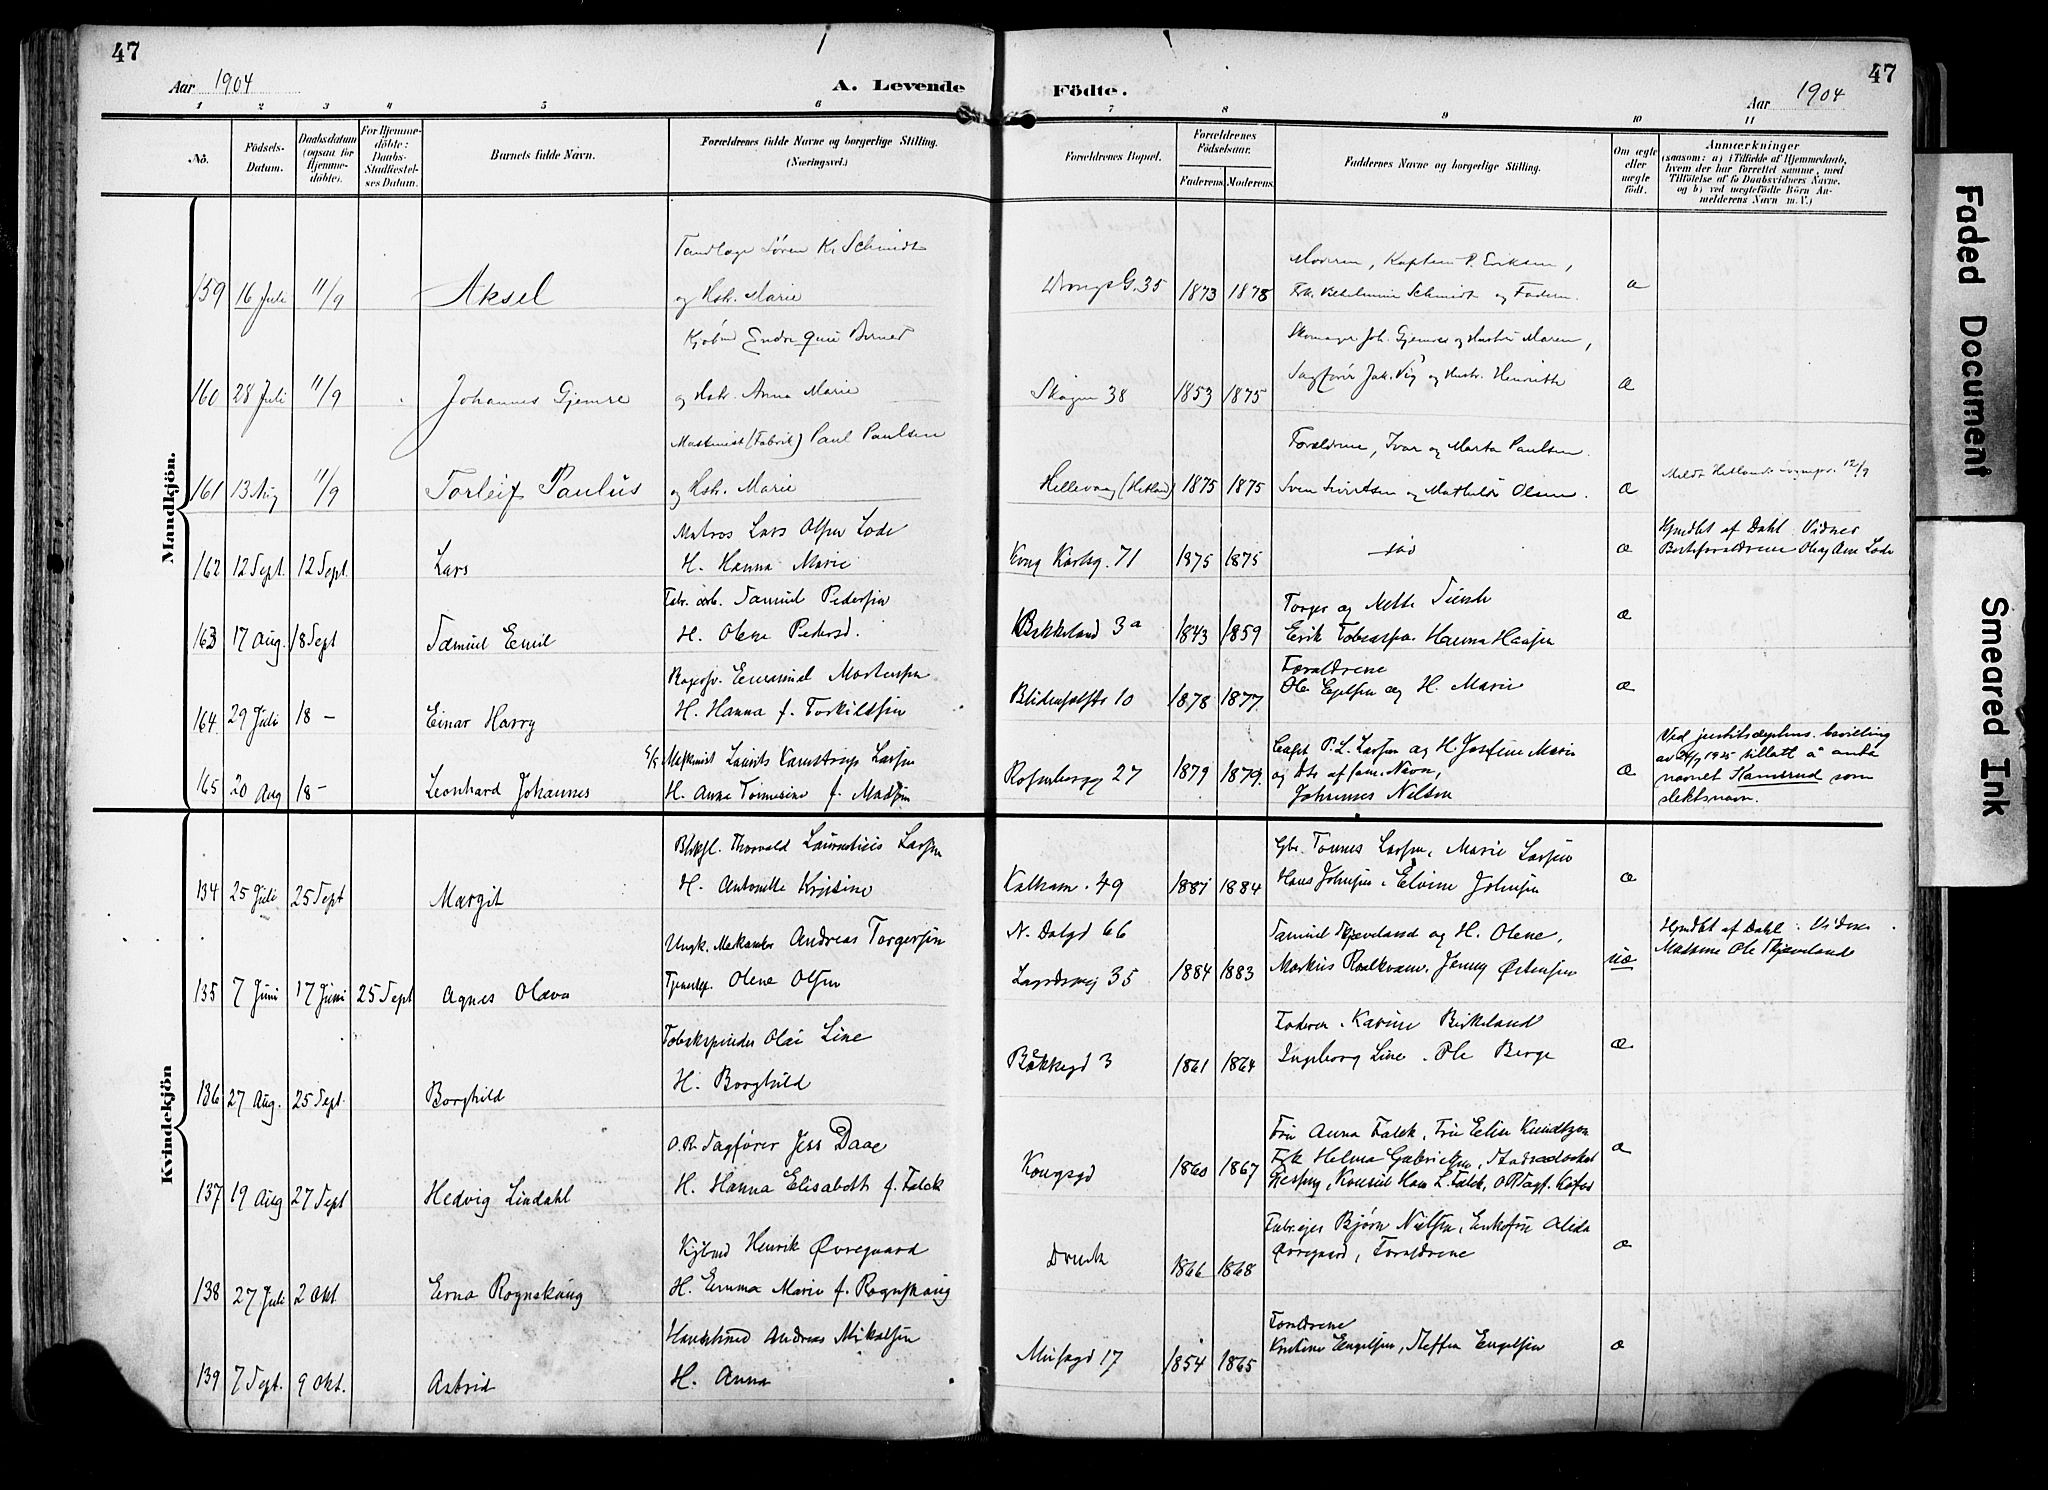 47
47
Aar 1904
A. Levende Födte.
Aar 1904
1 2 3 4 5 6 7 8 9 10 11
No.
Födsels-Datum.
Daabsdatum (ogsaa for Hjemme-döbte).
For Hjemme-döbte: Daabs-Stadfæstel-ses Datum.
Barnets fulde Navn.
Forældrenes fulde Navne og borgerlige Stilling. (Næringsvei.)
Forældrenes Bopæl.
Forældrenes Födselsaar.
Faderens. Moderens.
Faddernes Navne og borgerlige Stilling.
Om ægte eller uægte födt.
Anmærkninger
(saasom: a) i Tilfælde af Hjemmedaab, hvem der har forrettet samme, med Tilföielse af to Daabsvidners Navne. og b) ved uægtefödte Börn An-melderens Navn m. V.)
Mandkjön.
Tandlæge Sören K. Schmidt
Moderen, Kaptein P. Eriksen,
159 16 Juli 11/9 Aksel og Hstr. Marie G. 35 1873 1878 Frk. Schmidt og Faderen. æ
Kjøbm Endre
Skomager Joh. Gjemre og Hustru Maren,
160 28 Juli 11/9 Johannes Gjemre og Hstr. Anna Marie Skagen 38 1853 1875 Sagfører Jak. Vig og Hustr. Henriette æ
Maskinist (Fabrik) Paul Paulsen
Forældrene, Ivar og Marta Paulsen.
161 13 Aug 11/9 Torleif Paulus og Hstr. Marie Hillevaag (Hetland) 1875 1875 Sven og Mathilde Olsen. æ Meldt Hetlands sognepr. 12/9
Matros Lars Olsen Lode
Hjmdbt af Dahl. Vidner
162 12 Sept. 12 Sept. Lars H. Hanna Marie Kong Karlsg. 71 1875 1875 død æ Bedsteforældrene Ole og Ane Lode
Fabr. arb. Samuel Pedersen
Torger og Mette
163 17 Aug. 18 Sept Samuel Emil H. Olene Pedersd. Bekkeland 3a 1843 1859 Erik Hanna Hansen æ
Bagersv. Emanuel Mortensen
Forældrene
164 29 Juli 18 - Einar Harry H. Hanna f. Torkildsen Blidensolstr 10 1878 1877 Ole og H. Marie æ
Maskinist Laurits Kamstrup Larsen
Capt. P. L. Larsen og H. Josefine Marie
og Dtr af sam. Navn,
165 20 Aug 18 - Leonhard Johannes H. Anna Tomine f. Madsen Rosenbergg 27 1879 1879. Johannes Nilsen æ
Ved justitsdeptms. bevilling
av 24/7 1925 tillatt å anta
navnet Kamsrud som
slektsnavn.
Kvindekjön
Bliksl. Thorvald Laurentius Larsen
Gbr. Tønnes Larsen, Marie Larsen
134 25 Juli 25 Sept Margit H. Antonette Kristine Kalham. 49 1881 1884 Hans Johnsen, Elvine Johnsen æ
Ungk. Mekarb Andreas Torgersen
N. Dalgd 66
Samuel Skjæveland og H. Olene,
Hjmdbt af Dahl. Vidner
135 7 Juni 17 Juni 25 Sept Agnes Olava Tjenestep. Olene Olsen Lagårdsvej 35 1884 1883 Markus Jenny Østensen uæ Madame Ole Skjæveland
Tobakspinder Olai Line
Faderen, Karine Birkeland
136 27 Aug. 25 Sept. Borghild H. Borghild Bakkegd 3 1861 1864 Ingeborg Line, Ole Berge æ
O.R. Sagfører Jess Daae
Fru Anna Falck, Fru Elise Knudtzon
Frk Helma Gabrielsen, Stadsadvokat
137 19 Aug 27 Sept Hedvig Lindahl H. Hanna Elisabeth f. Falck Kongsgd 1860 1867 Konsul Hans L. Falck, O R Sagf. æ
Kjøbmd Henrik Øvregaard
Fabr.ejer Bjørn Nielsen, Enkefru Alida
138 27 Juli 2 Okt Erna Rognskaug H. Emma Marie f. Rognskaug 1866 1868 Øvregaard, Forældrene æ
Handelsmd Andreas Mikalsen
Forældrene
139 7 Sept. 9 Okt. Astrid H. Anna Musegd 17 1854 1865 Kristine Engelsen, Steffen Engelsen æ
Faded Document
Smeared Ink